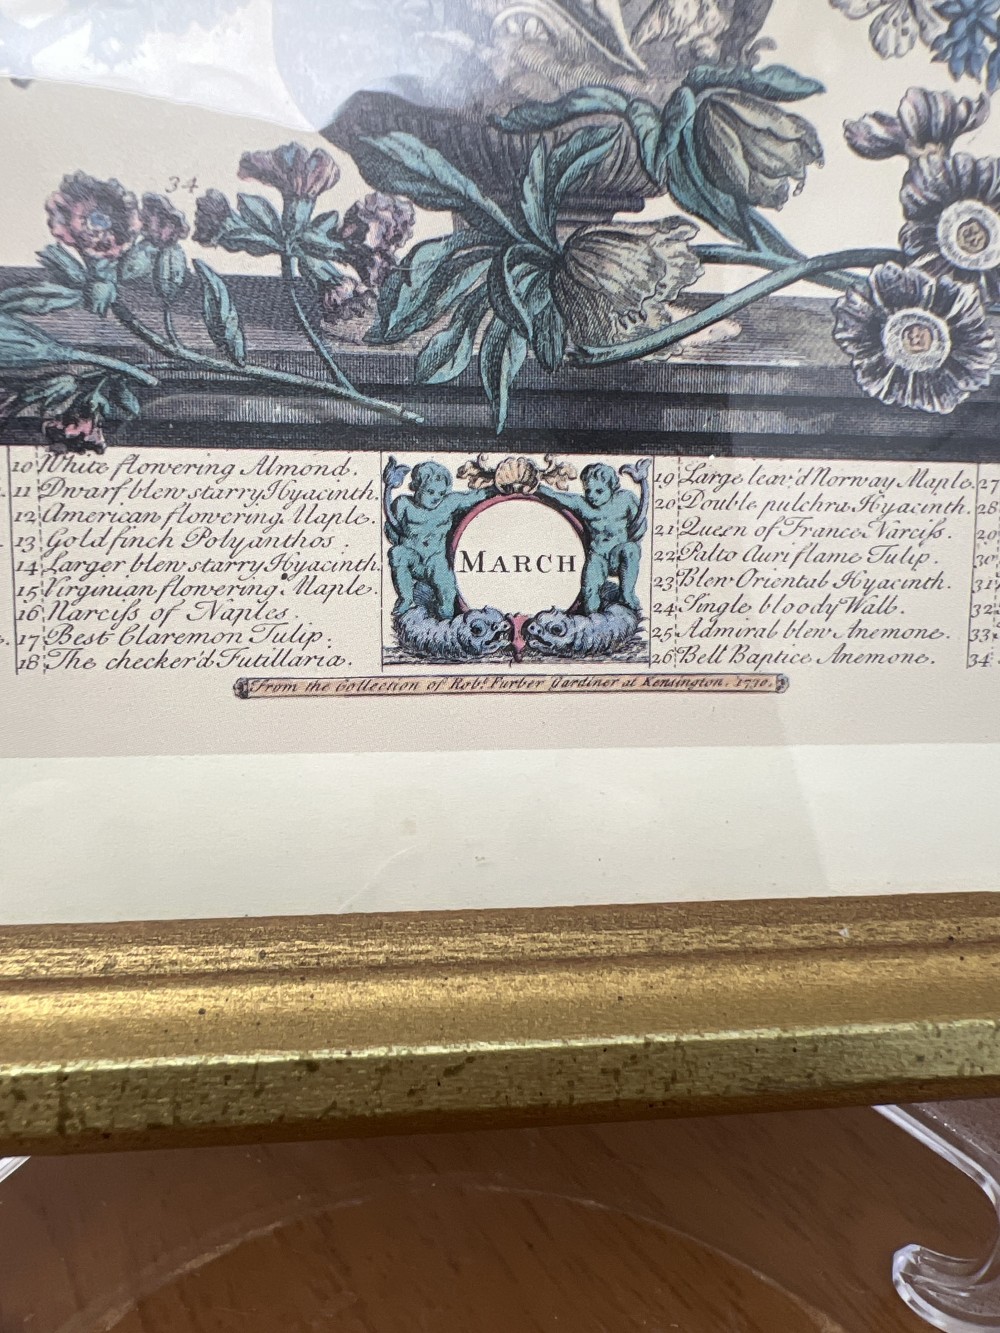 34
10 White flowering Almond.
11 Dwarf blew starry Hyacinth.
12 American flowering Maple.
13 Goldfinch Polyanthos.
14 Larger blew starry Hyacinth.
15 Virginian flowering Maple.
16 Narciſs of Naples.
17 Best Claremon Tulip.
18 The checker'd Futillaria.
MARCH
19 Large leav'd Norway Maple.
20 Double pulchra Hyacinth.
21 Queen of France Narciſs.
22 Palto Auriflame Tulip.
23 Blew Oriental Hyacinth.
24 Single bloody Wall.
25 Admiral blew Anemone.
26 Bell Baptice Anemone.
27
28
29
30
31
32
33
34
From the Collection of Robt. Furber Gardiner at Kensington. 1730.